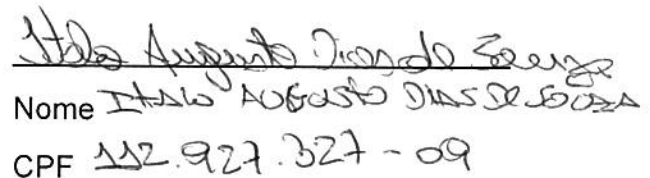 Italo Augusto Dias de Souza
Nome ITALO AUGUSTO DIAS DE SOUZA
CPF 112.927.327-09